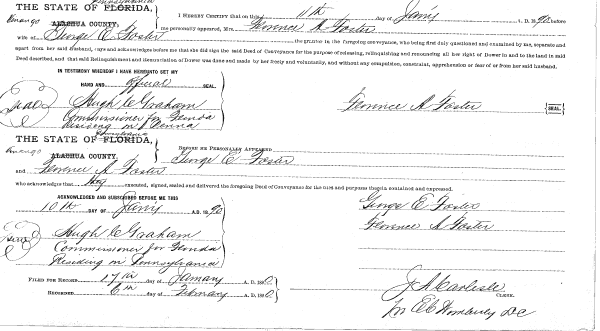 Pennsylvania
THE STATE OF FLORIDA,
Venango
ALACHUA COUNTY.
I HEREBY CERTIFY that on this 11th day of Jan'y A. D. 1890 before
me personally appeared, Mrs. Florence A. Foster
wife of George E Foster the grantor in the foregoing conveyance, who being first duly questioned and examined by me, separate and
apart from her said husband, say and acknowledge before me that she did sign the said Deed of Conveyance for the purpose of releasing, relinquishing and renouncing all her right of Dower in and to the land in said
Deed described, and that said Relinquishment and Renunciation of Dower was done and made by her freely and voluntarily, and without any compulsion, constraint, apprehension or fear of or from her said husband.
IN TESTIMONY WHEREOF I HAVE HEREUNTO SET MY
HAND AND official SEAL.
Seal
Hugh C Graham
Commissioner for Florida
Residing in Penna
Florence A Foster
SEAL.
Pennsylvania
THE STATE OF FLORIDA,
Venango
ALACHUA COUNTY.
BEFORE ME PERSONALLY APPEARED
George E Foster
and Florence A Foster
who acknowledges that they executed, signed, sealed and delivered the foregoing Deed of Conveyance for the uses and purposes therein contained and expressed.
ACKNOWLEDGED AND SUBSCRIBED BEFORE ME THIS
10th DAY OF Jan'y A.D. 1890
Seal
Hugh C Graham
Commissioner for Florida
Residing in Pennsylvania
George E Foster
Florence A Foster
FILED FOR RECORD 17th day of January A. D. 1890.
RECORDED 6th day of February A. D. 1890
J A Carlisle
CLERK.
DC